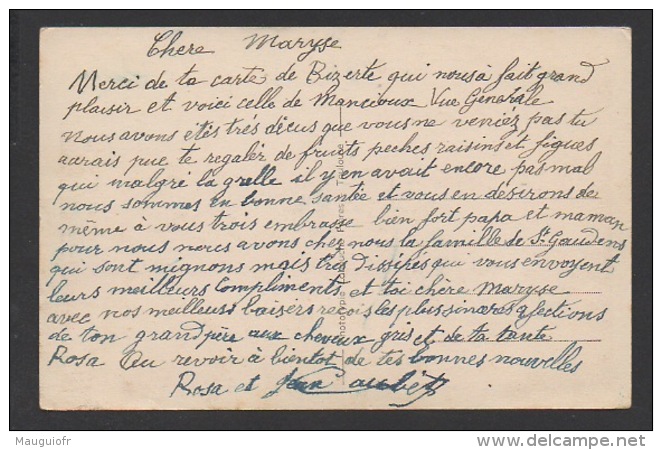 Chere Maryse
Merci de ta carte de Bizerte qui nous à fait grand
plaisir et voici celle de Mancioux Vue Generale
nous avons étés trés décus que vous ne veniez pas tu
aurais pue te regaler de fruits peches raisins et figues
qui malgré la grelle il y en avait encore pas mal
nous sommes en bonne santée et vous en désirons de
même à vous trois embrasse bien fort papa et maman
pour nous nous avons chez nous la famille de St Gaudens
qui sont mignons mais trés dissipés qui vous envoyent
leurs meilleurs compliments et toi chère Maryse
avec nos meilleurs baisers reçois les plus sinceres afections
de ton grand père aux cheveux gris et de ta tante
Rosa Au revoir à bientot de tes bonnes nouvelles
Rosa et Jean
Toulouse
Mauguiofr
www.delcampe.net